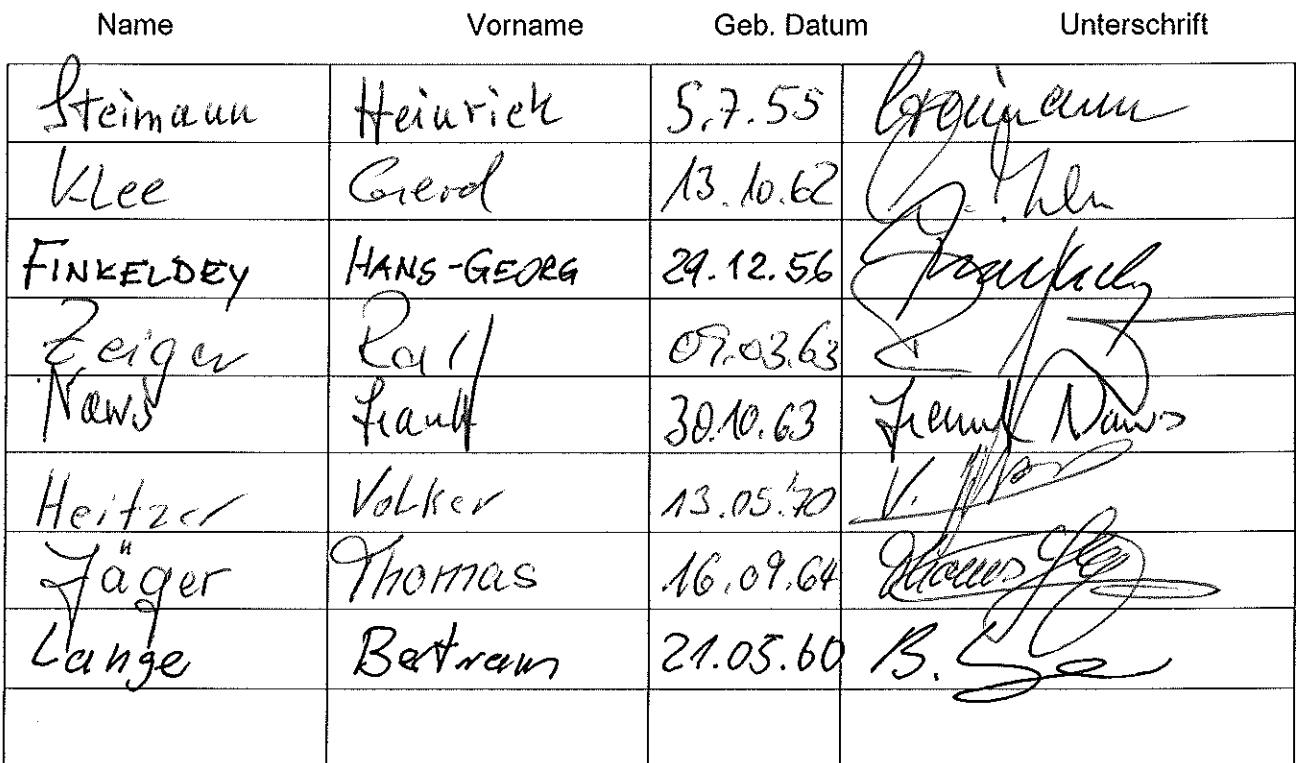 Name Vorname Geb. Datum Unterschrift
Steimann Heinrich 5.7.55
Klee Gerd 13.10.62
FINKELDEY HANS-GEORG 29.12.56
Zeiger Ralf 09.03.63
Naws Frank 30.10.63 Frank Naws
Heitzer Volker 13.05.70 V.
Jäger Thomas 16.09.64 Thomas
Lange Bertram 21.05.60 B.